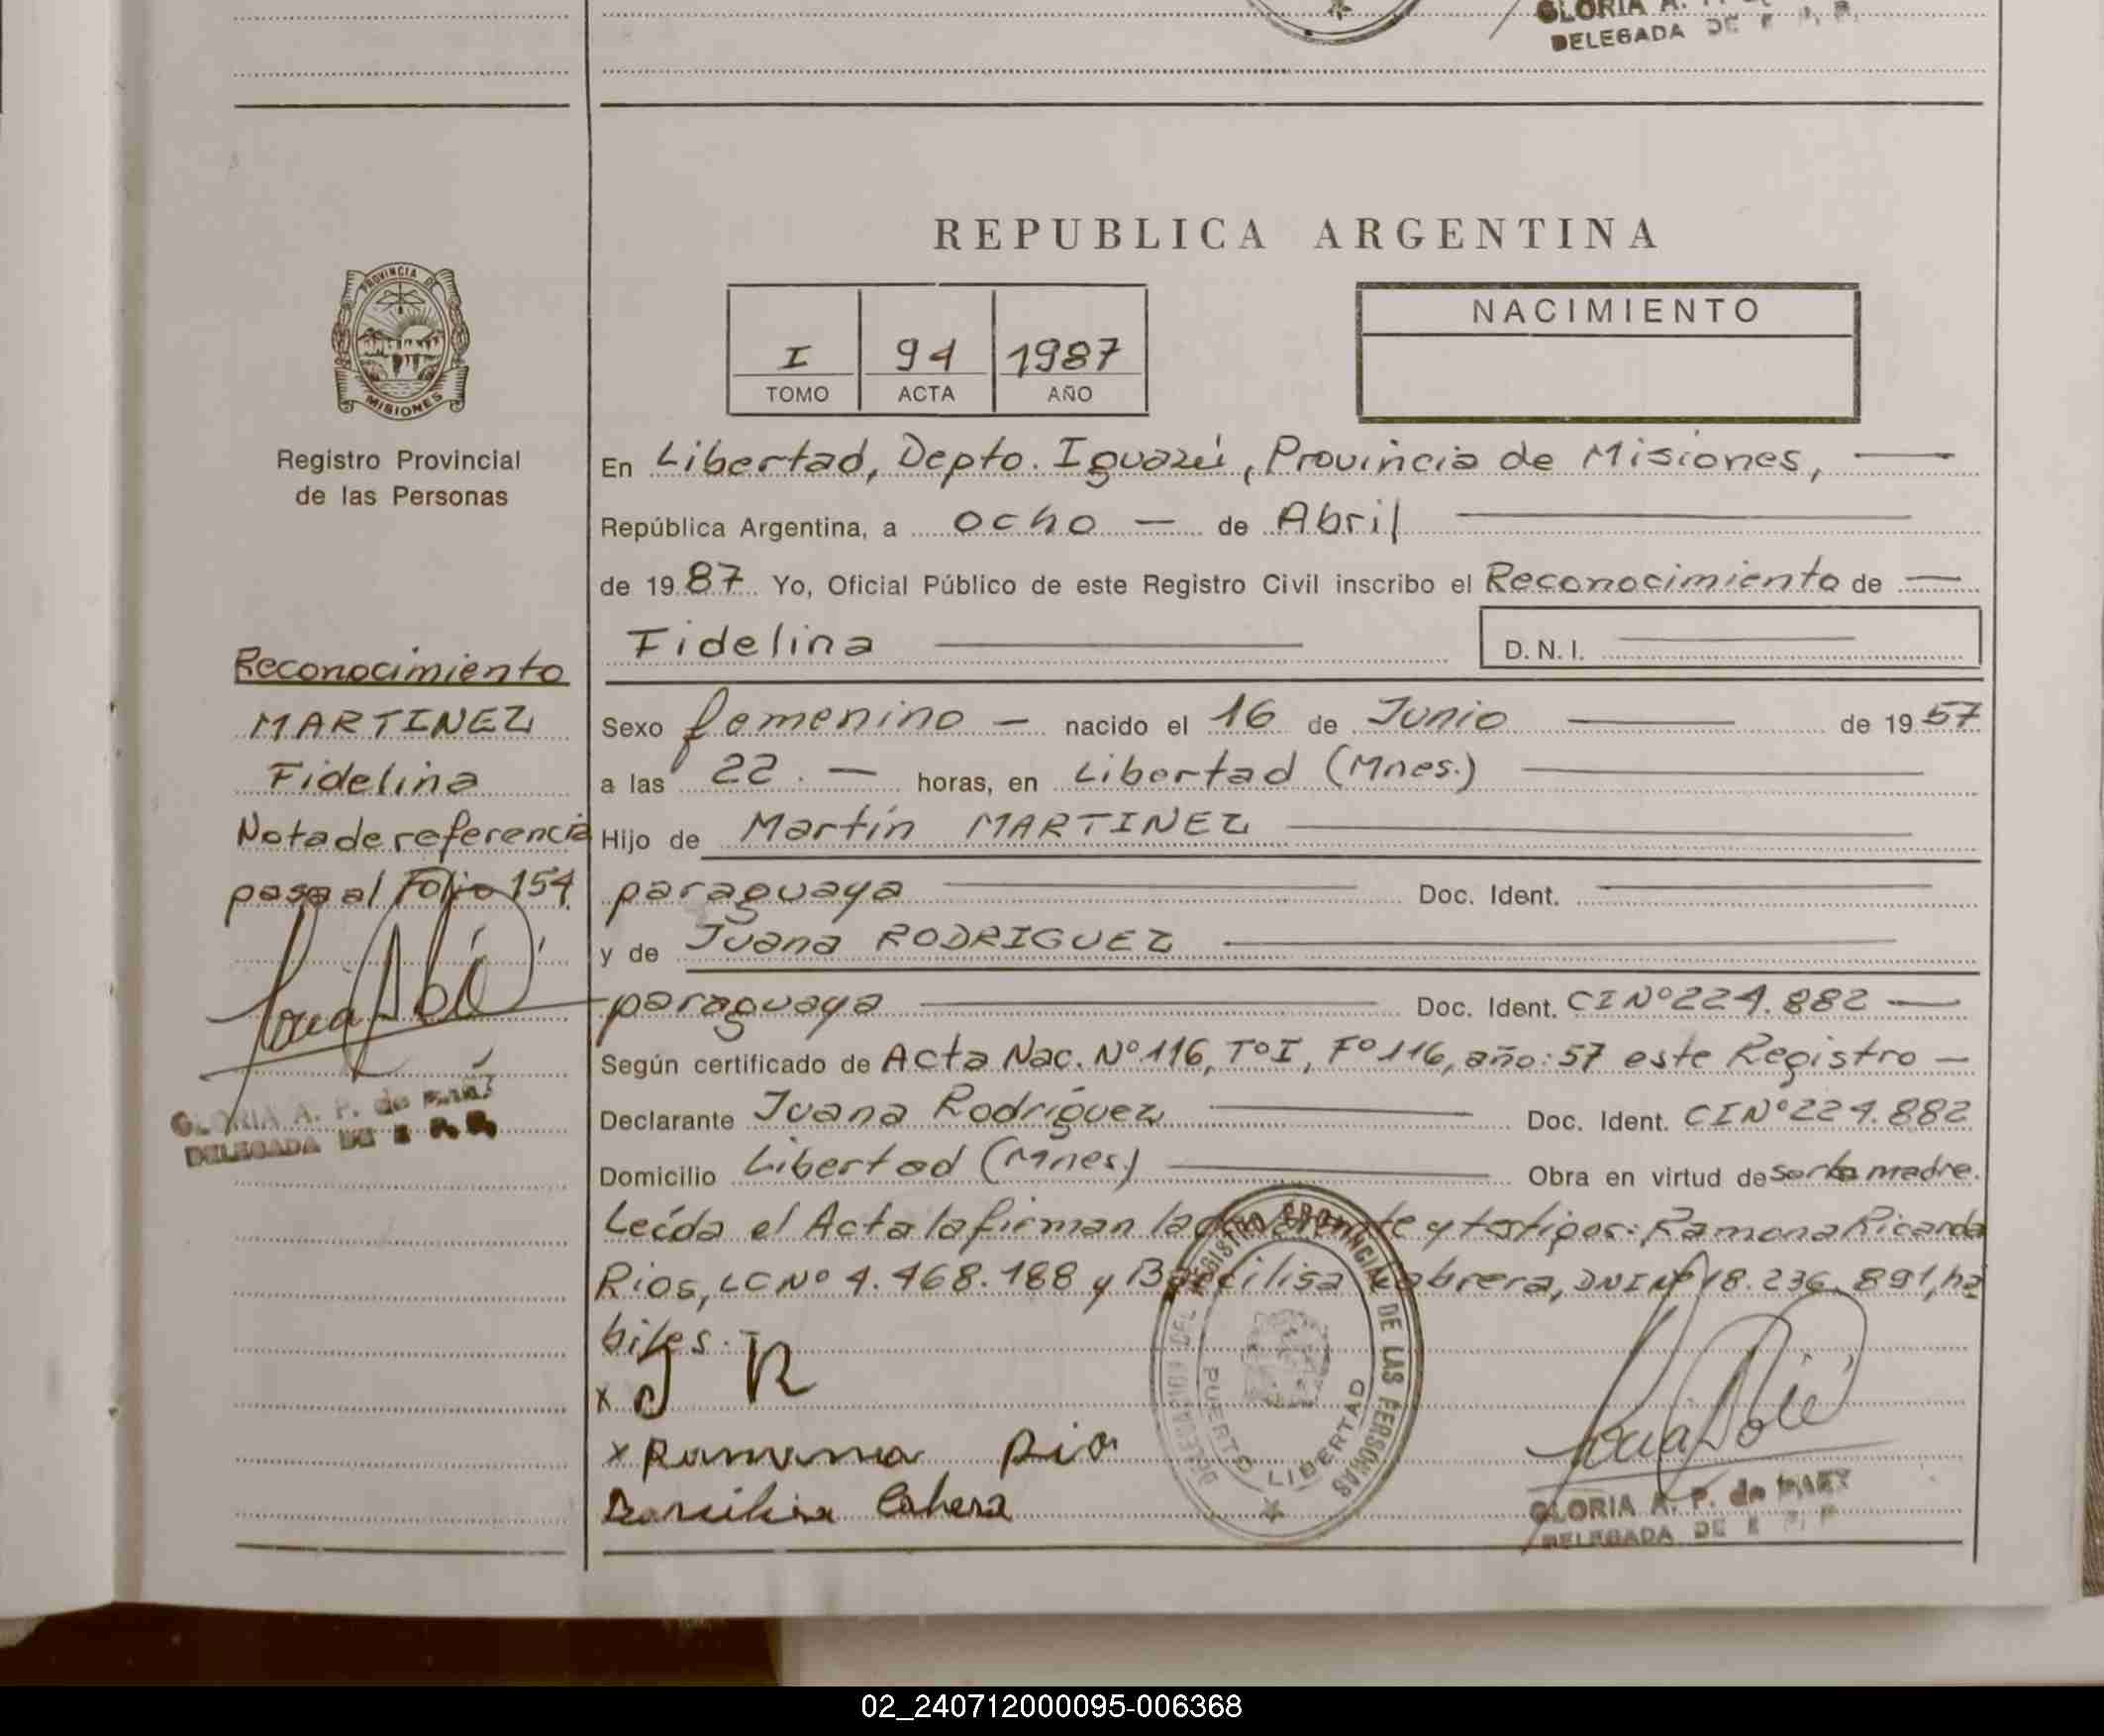 GLORIA A.
DELEGADA DE
REPUBLICA ARGENTINA
PROVINCIA DE
MISIONES
Registro Provincial
de las Personas
I 94 1987
TOMO ACTA AÑO
NACIMIENTO
En Libertad, Depto. Iguazú, Provincia de Misiones, —
República Argentina, a ocho — de Abril
de 1987 Yo, Oficial Público de este Registro Civil inscribo el Reconocimiento de —
Fidelina
D.N.I.
Reconocimiento
MARTINEZ
Fidelina
Nota de referencia
pasa al Folio 154
GLORIA A. P. de
DELEGADA DE
Sexo femenino — nacido el 16 de Junio de 1957
a las 22. — horas, en Libertad (Mnes.)
Hijo de Martín MARTINEZ
paraguaya Doc. Ident.
y de Juana RODRIGUEZ
paraguaya Doc. Ident. CI Nº 224.882 —
Según certificado de Acta Nac. Nº 116, Tº I, Fº 116, año: 57 este Registro —
Declarante Juana Rodríguez Doc. Ident. CI Nº 224.882
Domicilio Libertad (Mnes.) Obra en virtud de ser la madre.
Leída el Acta la firman la declarante y testigos: Ramona Ricarda
Rios, LC Nº 4.468.188 y Bacilisa Cabrera, DNI Nº 18.236.891, há
biles.
x J R
x Ramona Rio
Cabrera
REGISTRO PROVINCIAL DE LAS PERSONAS
PUERTO LIBERTAD
GLORIA A. P. de
DELEGADA DE
02_240712000095-006368